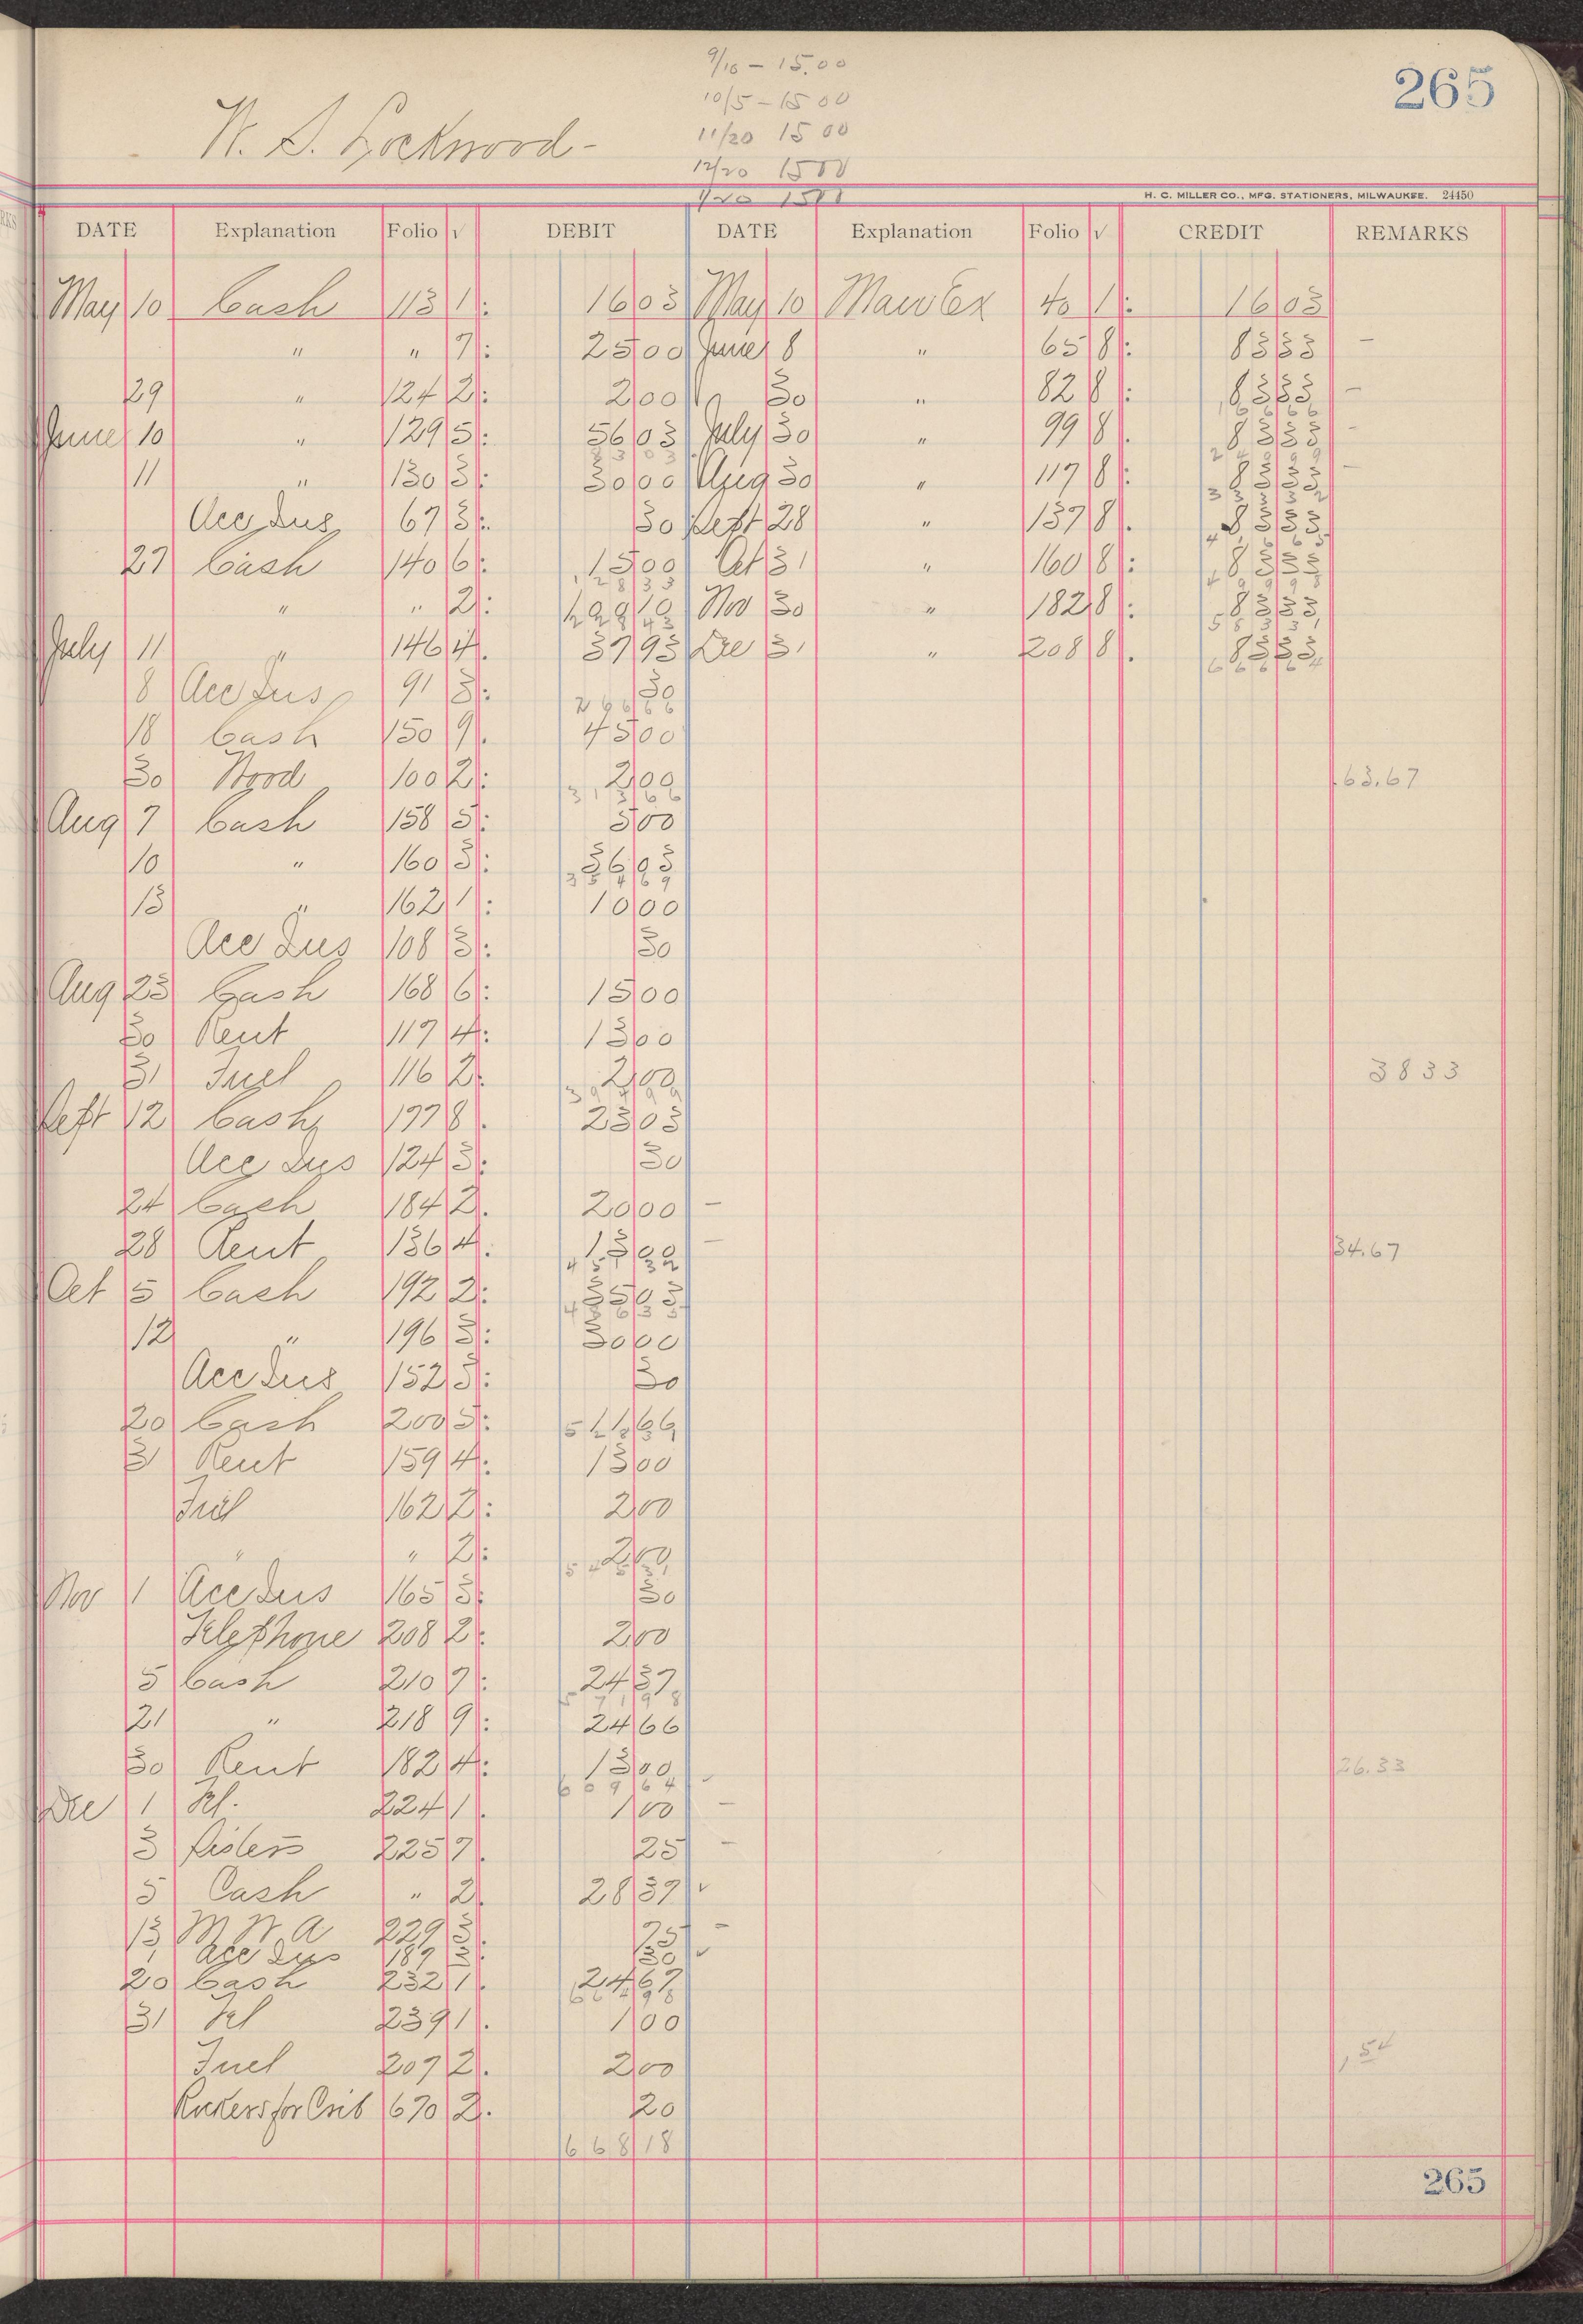 265
9/10 - 15.00
10/5 - 15 00
11/20 15 00
12/20 15 00
1/20 15 00
W. S. Lockwood -
H. C. MILLER CO., MFG. STATIONERS, MILWAUKEE. 24450
DATE Explanation Folio √ DEBIT DATE Explanation Folio √ CREDIT REMARKS
May 10 Cash 113 1: 16 03 May 10 Man Ex 40 1: 16 03
" " 7: 25 00 June 8 " 65 8: 83 33 -
29 " 124 2: 2 00 30 " 82 8: 83 33 -
166 66
June 10 " 129 5: 56 03 July 30 " 99 8. 83 33 -
83 03 249 99
11 " 130 3: 30 00 Aug 30 " 117 8: 83 33 -
333 32
Acc Ins 67 3: 30 Sept 28 " 137 8. 83 33
416 65
27 Cash 140 6: 15 00 Oct 31 " 160 8: 83 33
128 33 499 98
" " 2: Nov 30 " 182 8: 83 33
583 31
July 11 " 146 4. 37 93 Dec 31 " 208 8. 83 33
666 64
8 Acc Ins 91 3: 30
266 66
18 Cash 150 9. 45 00
30 Wood 100 2: 2 00 63.67
313 66
Aug 7 Cash 158 5: 5 00
10 " 160 3: 36 03
354 69
13 " 162 1: 10 00
Acc Ins 108 3: 30
Aug 23 Cash 168 6: 15 00
30 Rent 117 4: 13 00
31 Fuel 116 2. 2 00 38 33
394 99
Sept 12 Cash 177 8. 23 03
Acc Ins 124 3: 30
24 Cash 184 2. 20 00 -
28 Rent 136 4. 13 00 - 34.67
451 32
Oct 5 Cash 192 2: 35 03
486 35
12 " 196 3: 30 00
Acc Ins 152 3: 30
20 Cash 200 5:
31 Rent 159 4: 13 00
Fuel 162 2: 2 00
" " 2: 2 00
Nov 1 Acc Ins 165 3: 30
Telephone 208 2: 2 00
5 Cash 210 7: 24 37
571 98
21 " 218 9: 24 66
30 Rent 182 4: 13 00 26.33
609 64
Dec 1 Tel. 224 1. 1 00 -
3 225 7. 25 -
5 Cash " 2. 28 37 √
13 M W A 229 3. 75 -
1 Acc Ins 189 3. 30 √
20 Cash 232 1. 24 67
664 98
31 Tel 239 1. 1 00
Fuel 207 2. 2 00 1.54
Rockers for Crib 670 2. 20
668 18
265